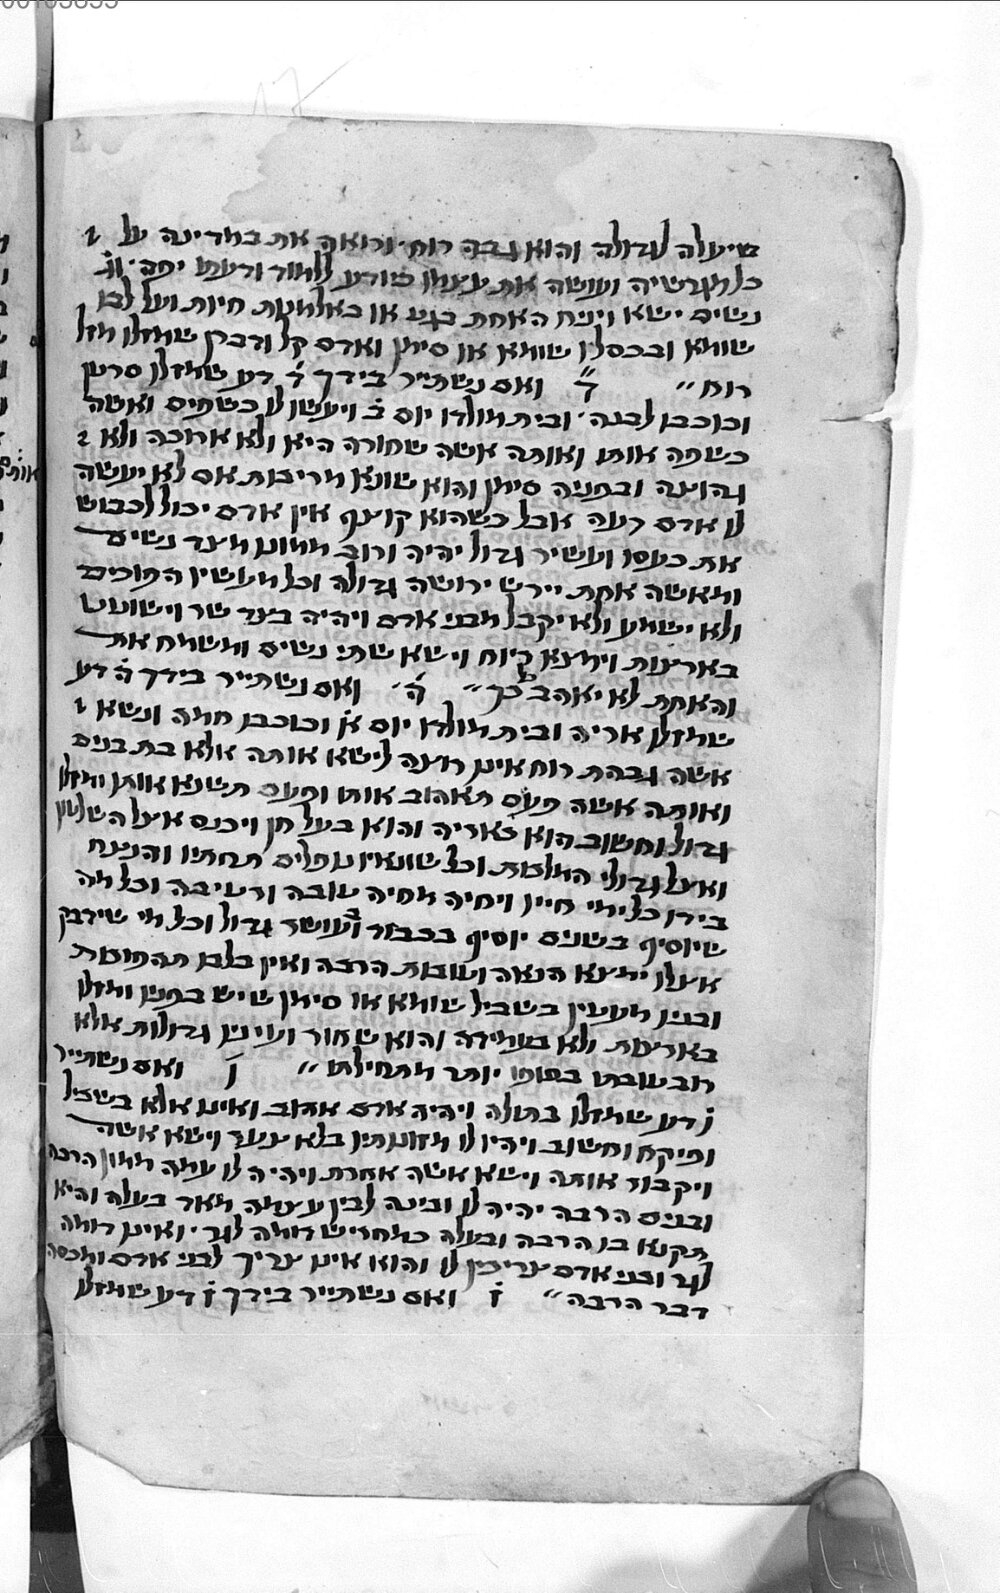 שיעלה לגדולה והוא גבה רוח ורואה את במדינה על
כל מגרשיה ועושה את עצמו כיודע ללמוד ודעתו יפה וג׳
נשים ישא ויניח האחת בגט או באלמנות חיות ועל לבו
שומא ובכסלו שומא או סימן ואדם קל ודברן שמזלו מזל
רוח ״ ד״ ואם נשתייר בידך ד׳ דע שמזלו סרטן
וכוכבו לבנה ובית מולדו יום ב׳ ויעשו לו כשפים ואשה
כשפה אותו ואותה אשה שחורה היא ולא ארוכה ולא
גהוצה ובפניה סימן והוא שונא מריבות אם לא יעשה
לו אדם רעה אבל כשהוא קוצף אין אדם יכול לכבוש
את כעסו ועשיר גדול יהיה ורוב ממונו מצד נשים
ומאשה אחת יירש ירושה גדולה וכל מעשיו הפוכים
ולא ישמע ולא יקבל מבני אדם ויהיה בעד שר וישוטט
בארצות וימצא ריוח וישא שתי נשים ומשמח את
והאחת לא יאהב כך ״ ה׳ ואם נשתייר בידך ה׳ דע
שמזלו אריה ובית מולדו יום א׳ וכוכבו חמה ונשא
אשה גבהת רוח אינו רוצה לישא אותה אלא בת בנים
ואותה אשה פעם תאהוב אותו ופעם תשנא אותו ומזלו
גדול וחשוב הוא כאריה והוא בעל חן ויכנס אצל השלטון
ואצל גדולי המלכות וכל שונאיו נופלים תחתיו והניצח
בידו כל ימי חייו ויחיה מחיה טובה ורטיבה וכל מה
שיוסיף בשנים יוסיף בכבוד ובעושר גדול וכל מי שידבק
אצלו ימצא הנאה וטובות הרבה ואין בלבו תהפוכות
ובניו מעטין בשביל שומא או סימן שיש בפניו ומזלו
בארצות ולא בעמידה והוא שחור ועיניו גדולות אלא
רוב טובתו בסופו יותר מתחילתו ״ ו׳ ואם נשתייר
ו׳ דע שמזלו בתולה ויהיה אדם אהוב ואינו אלא בשביל
ופיקח וחשוב ויהיו לו מזונותיו בלא צער וישא אשה
ויקבור אותה וישא אשה אחרת ויהיה לו עמה ממון הרבה
ובנים הרבה יהיה לו ובינה לבין עצמה מאד בעלה והיא
תקנא בו הרבה ובעלה כמחריש דומה לגר ואינו דומה
לגר ובני אדם צריכין לו והוא אינו צריך לבני אדם ומכסה
דבר הרבה ״ ז׳ ואם נשתייר בידך ז׳ דע שמזלו